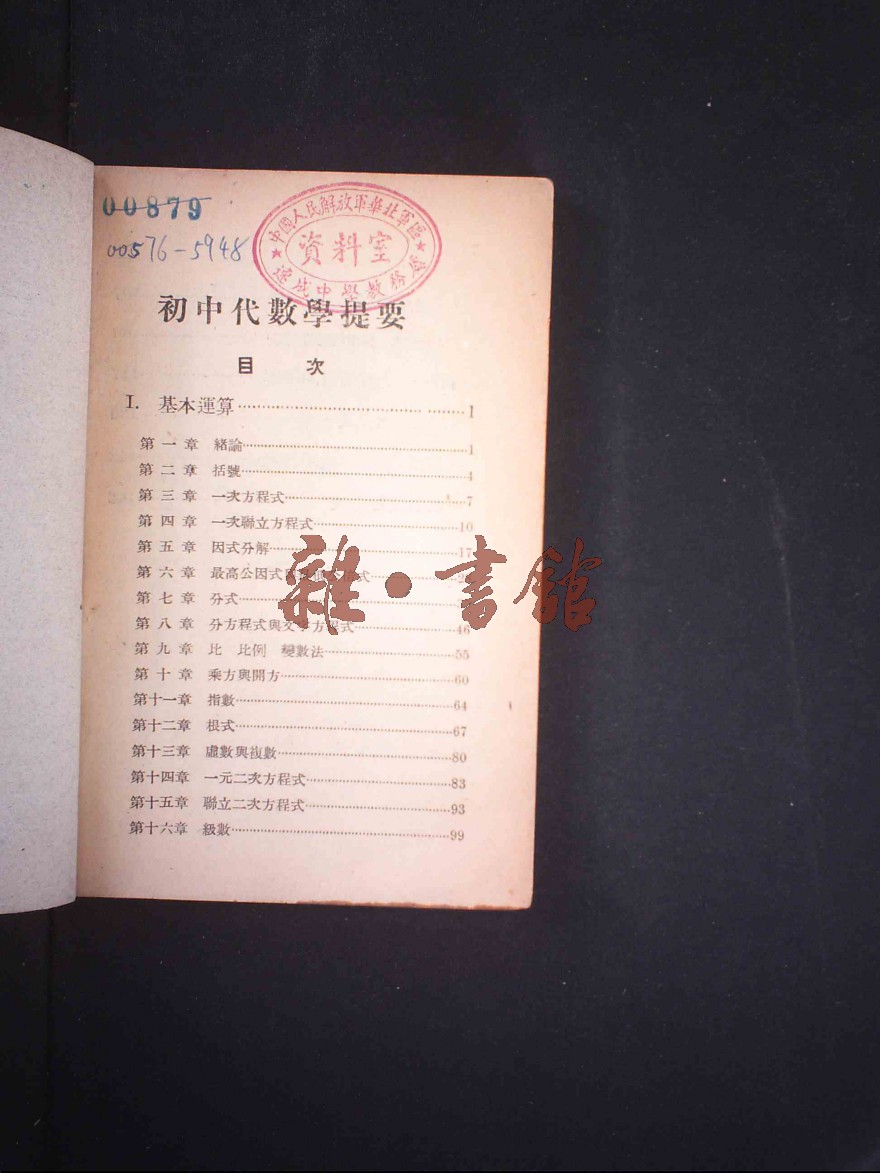 00879
00576-5948
中國人民解放軍華北軍區
資料室
速成中學教務處
初中代數學提要
目 次
I. 基本運算 1
第一章 緒論 1
第二章 括號 4
第三章 一次方程式 7
第四章 一次聯立方程式 10
第五章 因式分解 17
第六章 最高公因式
第七章 分式
第八章 分方程式與文字方程式 46
第九章 比 比例 變數法 55
第十章 乘方與開方 60
第十一章 指數 64
第十二章 根式 67
第十三章 虛數與複數 80
第十四章 一元二次方程式 83
第十五章 聯立二次方程式 93
第十六章 級數 99
雜·書館